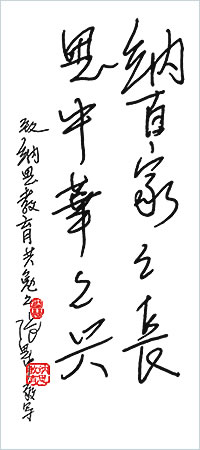 納百家之長
思中華之兴
致纳思教育共勉之